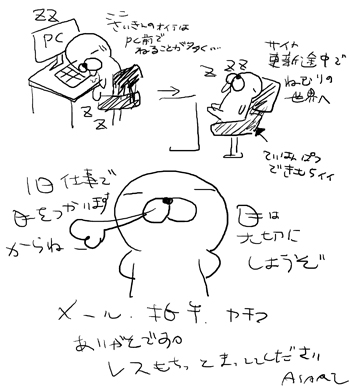 ZZ
PC
ここ
さいきんのオイテは
PC前で
ねることが多く…
Z
Z
Z ZZ
サイカ
更新途中で
ねむりの
世界へ
ていはんぱつ
できもちイイ
1日仕事で
目をつかいます
からね
目は
大切に
しようぞ
メール・拍手・カキコ
ありがとです。
レスもちっとまっててください